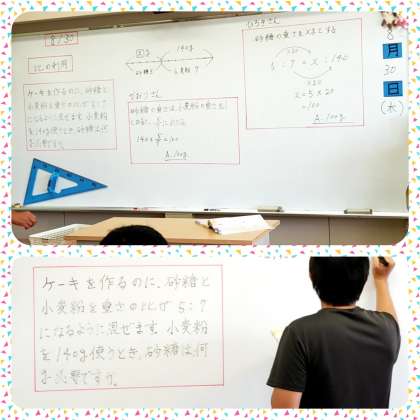 8/30
比の利用
ケーキを作るのに、砂糖と
小麦粉を重さの比が5:7
になるように混ぜます。小麦粉
を140g使うとき、砂糖は何
g必要ですか。
図
140g
砂糖5
小麦粉7
砂糖の重さは、小麦粉の重さを1
140×5/7=100
A.100g
ひろきさん
砂糖の重さをxgとする
×20
5:7=x:140
×20
x=5×20
=100
A.100g
8
月
30
日
(水)
ケーキを作るのに、砂糖と
小麦粉を重さの比が5:7
になるように混ぜます。小麦粉
を140g使うとき、砂糖は何
g必要ですか。